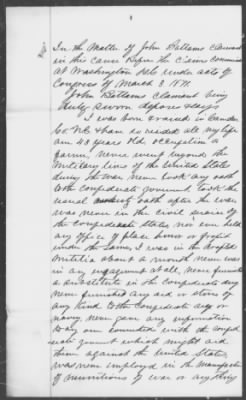 In the Matter of John Bettams claimant
in this cause Before the Claims Commiss
At Washington Dctr under acts of
Congress of March 3 1871.
John Bettams claimant being
duly sworn deposes & says
I was born & raised in Camden
Co. N.C. & have so resided all my life
am 43 years old, occupation a
farmer, never went beyond the
Military lines of the United States
during the war never took any oath
to the Confederate government took the
usual oath after the war
was never in the civil service of
the confederate states, nor ever held
any office of place power or profit
under the same, I was in the
Militia about a month never was
in any engagement at all, never furnished
a substitute in the confederate army
never furnished any aid or stores of
any kind to the Confederate army or
navy, never gave any information
to any one connected with the confed
erate government which might aid
them against the United States,
was never employed in the manufacture
of munitions of war or any thing